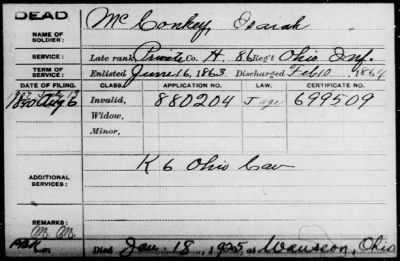 DEAD
NAME OF SOLDIER: McConkey, Isaiah
SERVICE: Late rank, Private Co. H, 86 Reg't Ohio Inf.
TERM OF SERVICE: Enlisted June 16, 1863 Discharged Feb 10, 1864
DATE OF FILING. CLASS. APPLICATION NO. LAW. CERTIFICATE NO.
1890 Aug 6 Invalid, 880204 699509
Widow,
Minor,
ADDITIONAL SERVICES: K 6 Ohio Cav
REMARKS:
Died Jan. 18, 1925, at Wauseon, Ohio